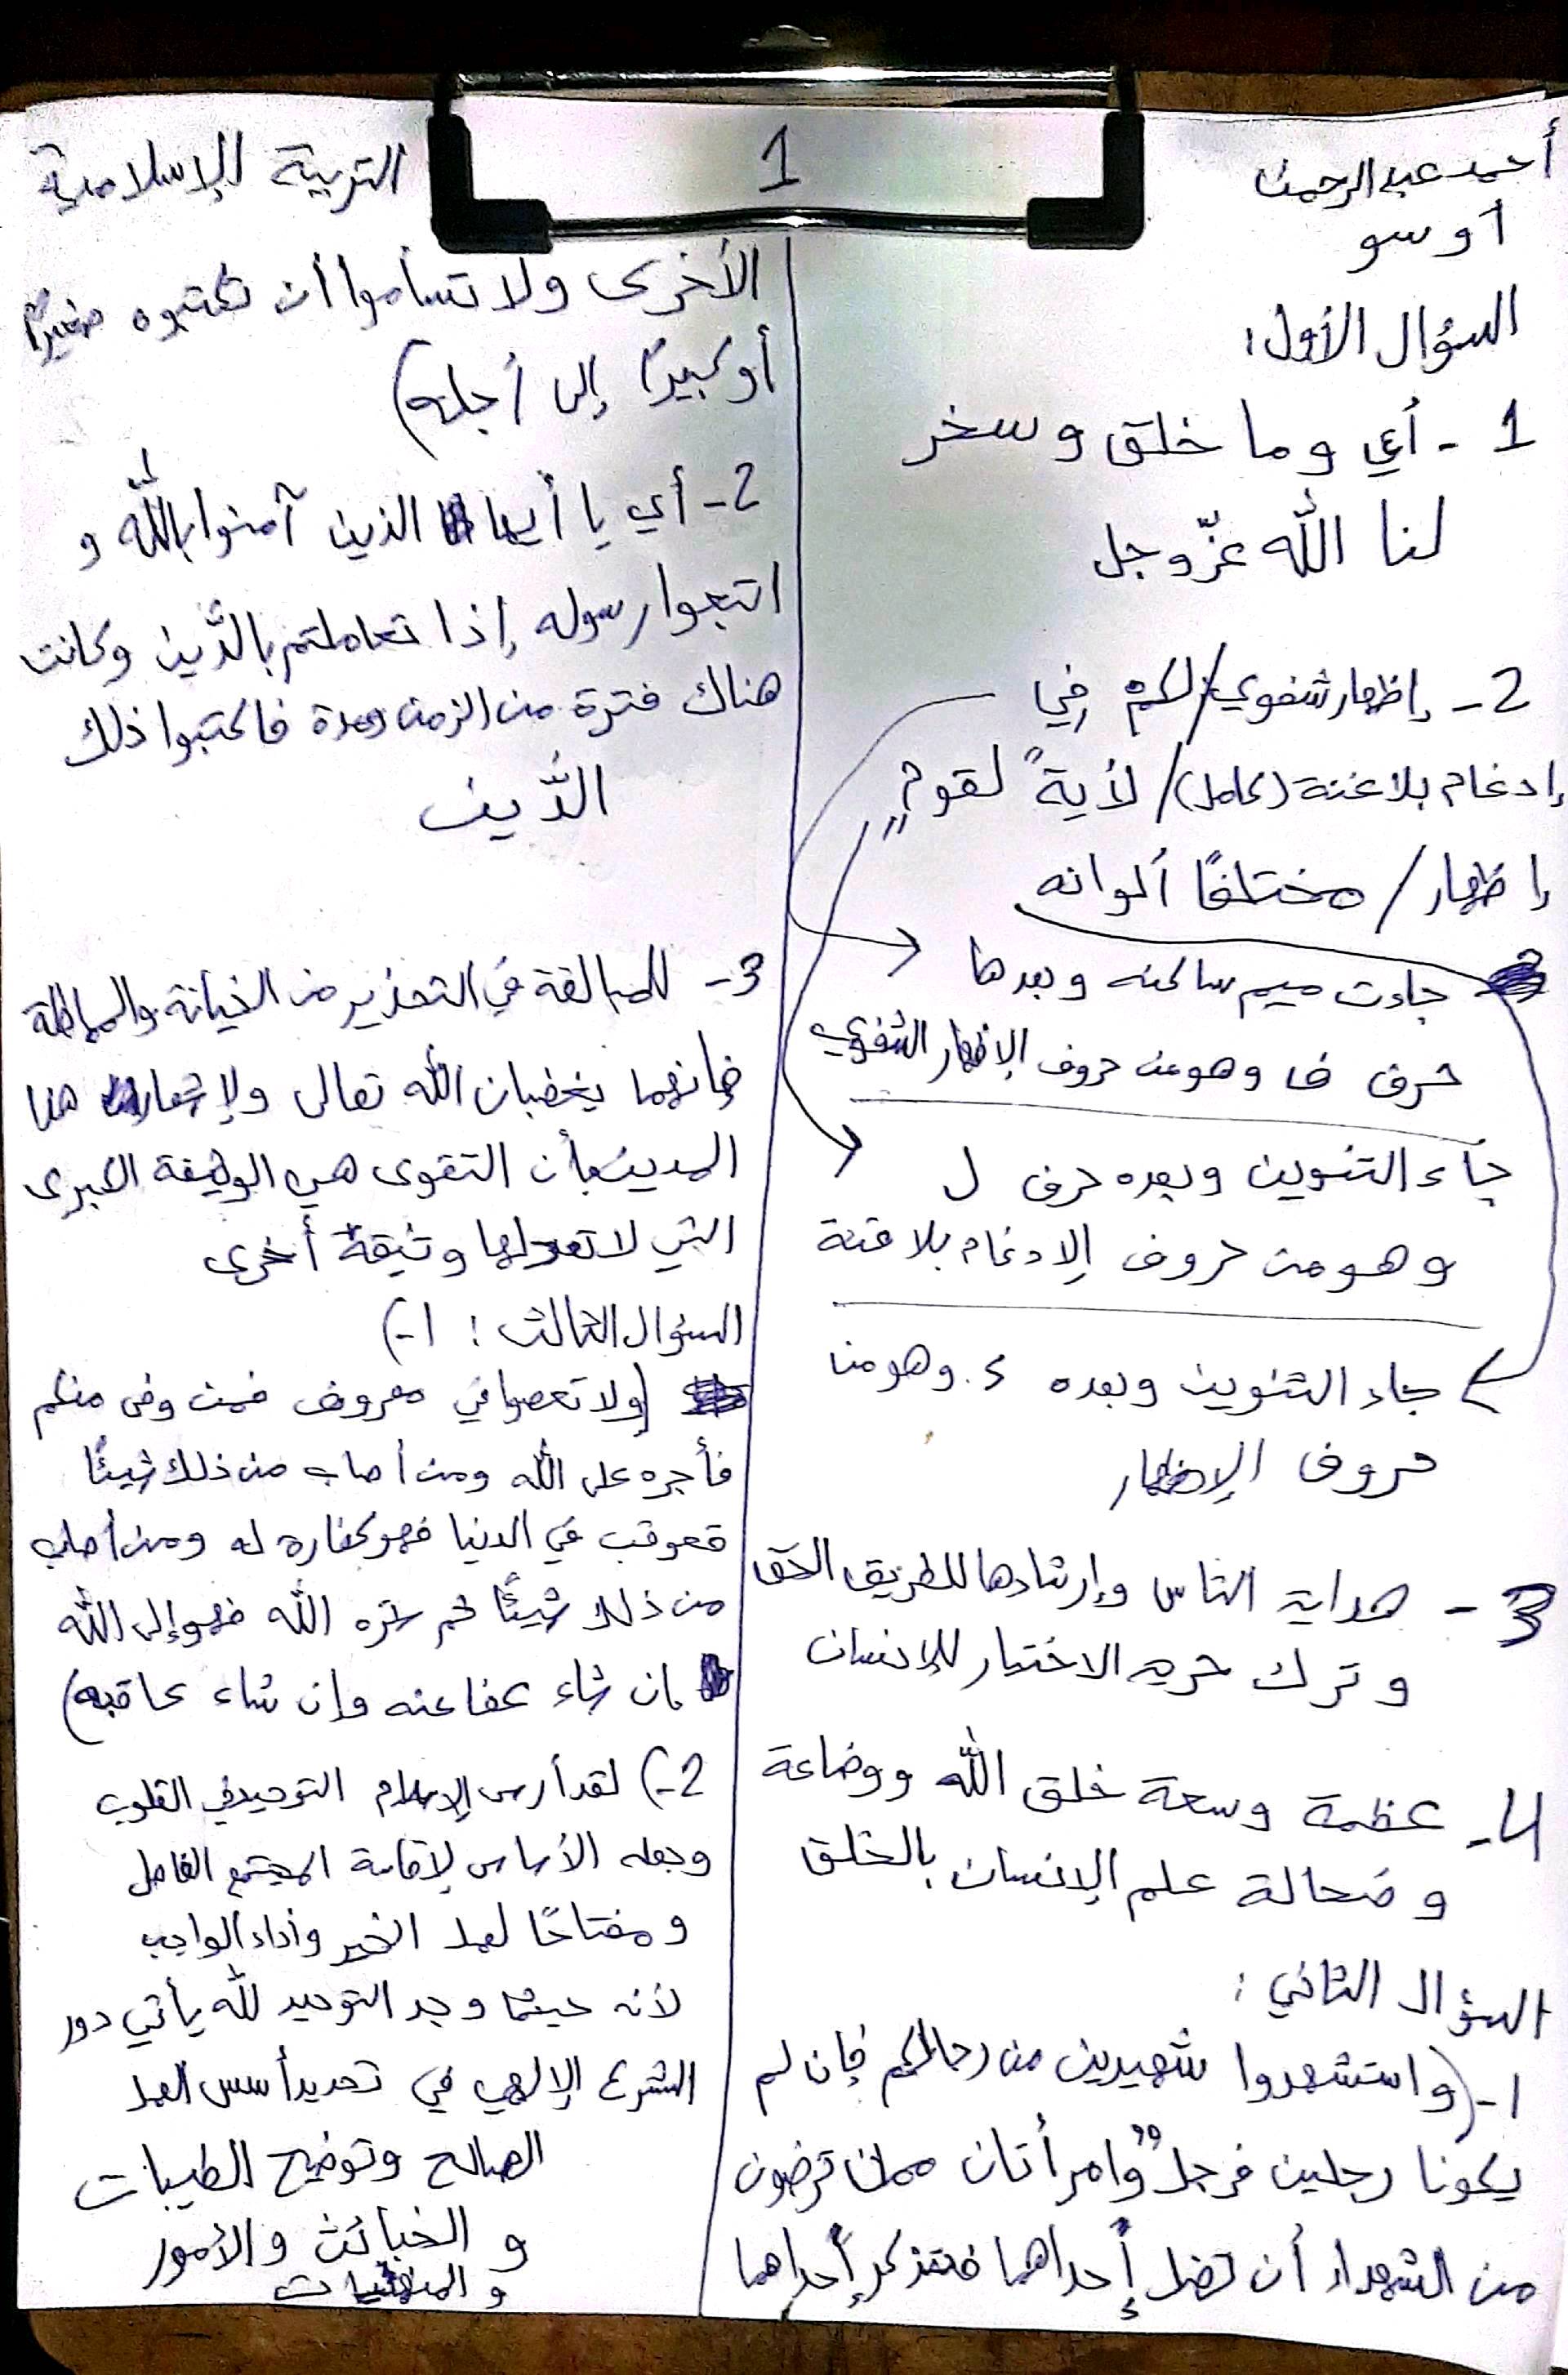 أحمد عبد الرحمن
أوسو
1
التربية الإسلامية
السؤال الأول:
1 - أي وما خلق وسخر
لنا الله عزّ وجل
2 - إظهار شفوي / لكم في
إدغام بلا غنة (كامل) / لأيةً لقومٍ
إظهار / مختلفًا ألوانه
جاءت ميم ساكنه وبعدها
حرف ف وهو من حروف الإظهار الشفوي
جاء التنوين وبعده حرف ل
وهو من حروف الإدغام بلا غنة
جاء التنوين وبعده ء وهو من
حروف الإظهار
3 - هداية الناس وإرشادها للطريق الحق
وترك حريه الاختيار للإنسان
4 - عظمة وسعة خلق الله ووضاعة
وضحالة علم الإنسان بالخلق
السؤال الثاني:
1 - (واستشهدوا شهيدين من رجالكم فإن لم
يكونا رجلين فرجلٌ وامرأتان ممن ترضون
من الشهداء أن تضل إحداهما فتذكر إحداهما
الأخرى ولا تسأموا أن تكتبوه صغيرًا
أو كبيرًا إلى أجله)
2 - أي يا أيها الذين آمنوا بالله و
اتبعوا رسوله إذا تعاملتم بالدَّين وكانت
هناك فترة من الزمن فاكتبوا ذلك
الدَّين
3 - للمبالغة في التحذير من الخيانة والمماطلة
فإنهما يغضبان الله تعالى ولإشعار
المدين بأن التقوى هي الوثيقة الكبرى
التي لا تعدلها وثيقة أخرى
السؤال الثالث: 1-)
(ولا تعصوا في معروف فمن وفى منكم
فأجره على الله ومن أصاب من ذلك شيئًا
فعوقب في الدنيا فهو كفارة له ومن أصاب
من ذلك شيئًا ثم ستره الله فهو إلى الله
إن شاء عفا عنه وإن شاء عاقبه)
2-) لقد أرسى الإسلام التوحيد في القلوب
وجعله الأساس لإقامة المجتمع الفاضل
ومفتاحًا لعمل الخير وأداء الواجب
لأنه حيثما وجد التوحيد لله يأتي دور
الشرع الإلهي في تحديد أسس العمل
الصالح وتوضيح الطيبات
و الخبائث والأمور